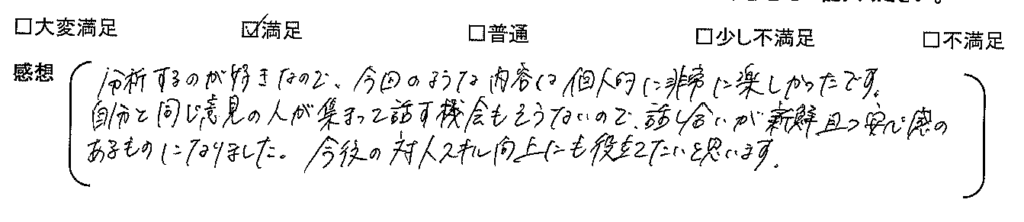 □大変満足 ☑満足 □普通 □少し不満足 □不満足
感想
分析するのが好きなので、今回のような内容は個人的に非常に楽しかったです。
自分と同じ意見の人が集まって話す機会もそうないので、話し合いが新鮮且つ安心感の
あるものになりました。今後の対人スキル向上にも役立てたいと思います。